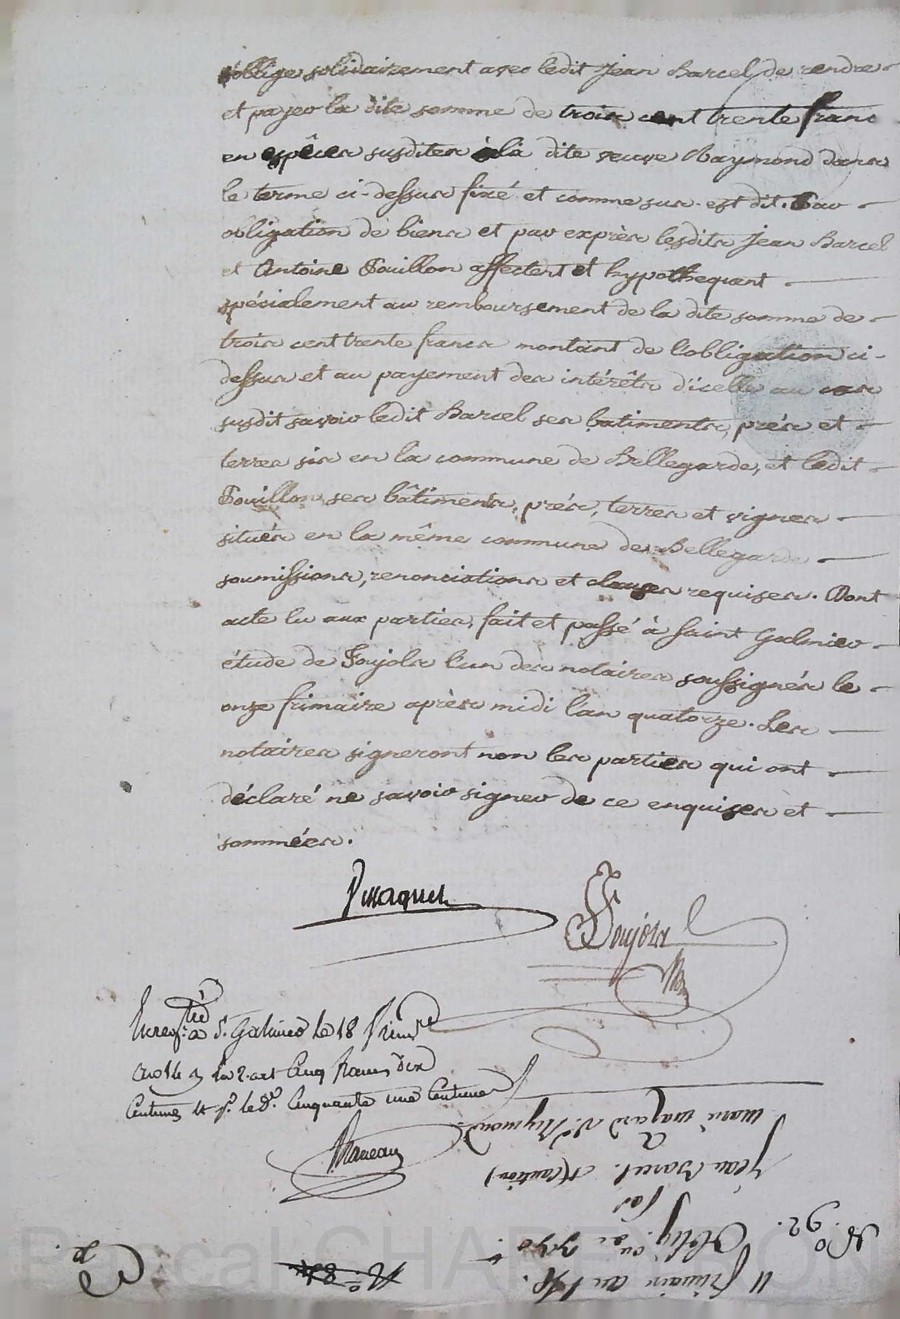 s'oblige solidairement avec ledit Jean Barcel, de rendre
et payer la dite somme de trois cent trente francs
en espèces susdites à la dite veuve Raymond dans
le terme ci-dessus fixé et comme sus-est dit. Par
obligation de biens et par exprès lesdits Jean Barcel
et Antoine Fouillon affectent et hypothequent
spécialement au remboursement de la dite somme de
trois cent trente francs montant de l'obligation ci-
dessus et au payement des intérêts d'icelle au cas
susdit savoir ledit Barcel ses batiments, prés et
terres sis en la commune de Bellegarde, et ledit
Fouillon ses bâtiments, prés, terres et vignes
situés en la même commune de Bellegarde
soumissions, renonciations et clauses requises. Dont
acte lu aux parties, fait et passé à Saint Galmier
étude de Foujols l'un des notaires soussignés le
onze frimaire après midi l'an quatorze. Les
notaires signeront non les parties qui ont
déclaré ne savoir signer de ce enquises et
sommées.
Foujols
à St. Galmier le 18 frim.re
an 14 Cinq francs dix
Centimes cinquante une Centimes
Marie v.e Reymond
a
Jean Barcel
par
N.o 92. Oblig.on
11 frimaire an 14.
Pascal CHAREYRON